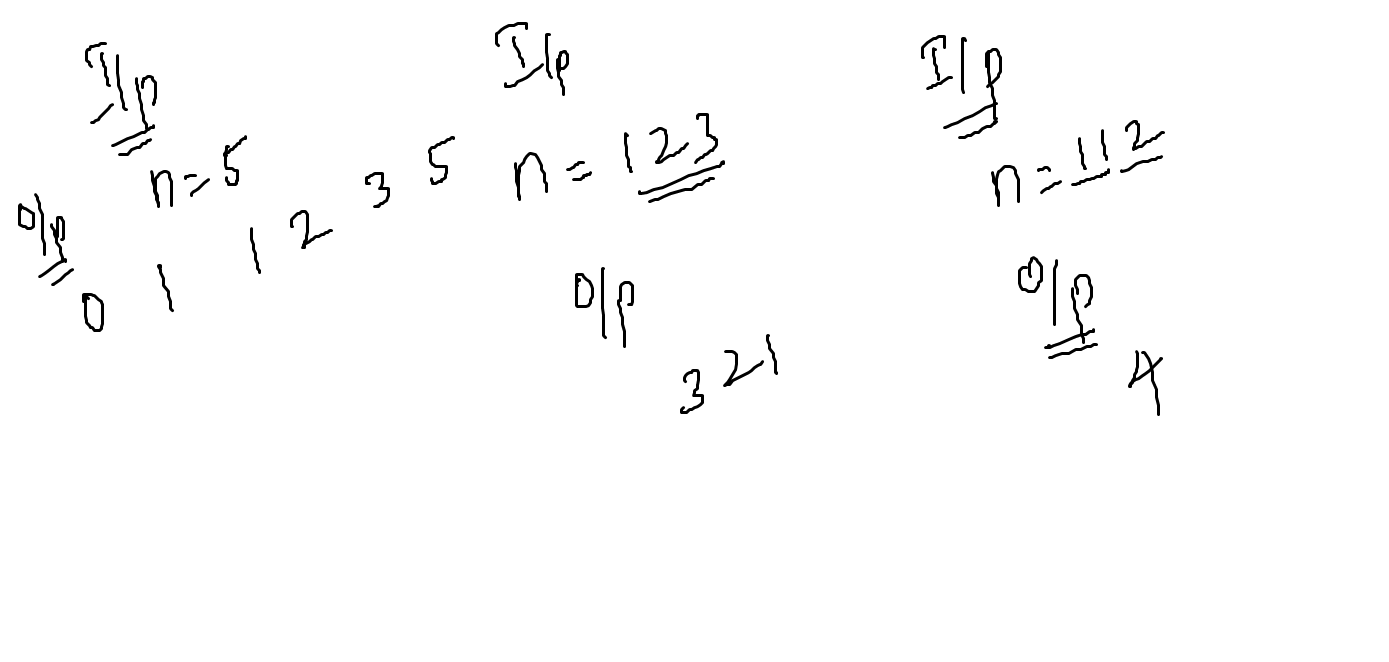 I/p
n = 5
o/p
0 1 1 2 3 5
I/p
n = 123
o/p
321
I/p
n = 112
o/p
4